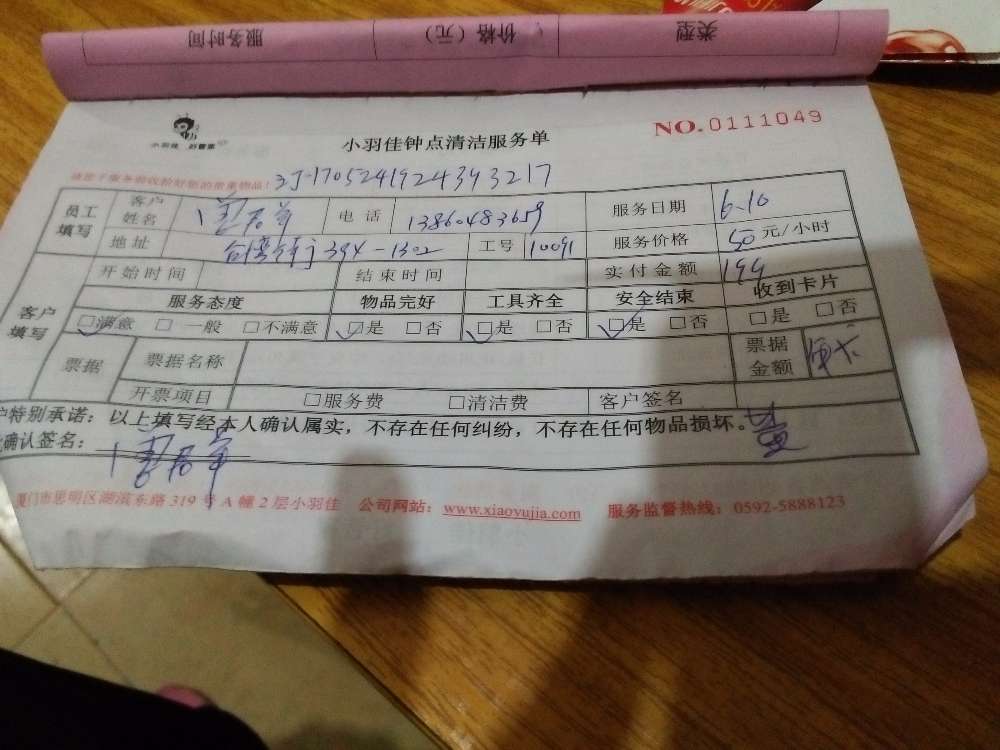 服务时间 价格（元） 类型
小羽佳
小羽佳钟点清洁服务单 NO.0111049
3J-1705241924393217
员工填写 客户姓名 电话 13860483659 服务日期 6.10
地址 394-1302 工号 10091 服务价格 50元/小时
开始时间 结束时间 实付金额 199
客户填写 服务态度 物品完好 工具齐全 安全结束 收到卡片
□满意 □一般 □不满意 □是 □否 □是 □否 □是 □否 □是 □否
票据 票据名称 票据金额
开票项目 □服务费 □清洁费 客户签名
户特别承诺：以上填写经本人确认属实，不存在任何纠纷，不存在任何物品损坏。
确认签名：
厦门市思明区湖滨东路319号A幢2层小羽佳 公司网站：www.xiaoyujia.com 服务监督热线：0592-5888123